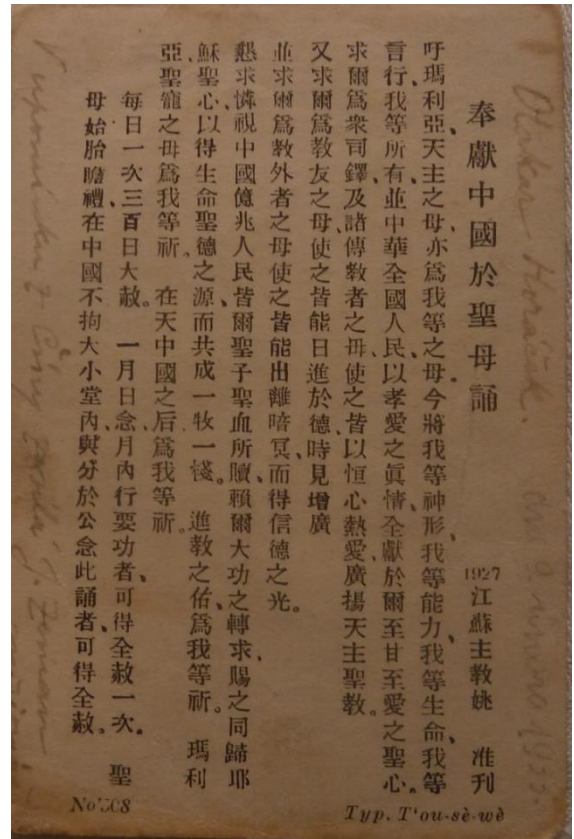 Horáček.
奉獻中國於聖母誦
1927 江蘇主教姚 准刊
吁瑪利亞、天主之母、亦爲我等之母。今將我等神形、我等能力、我等生命、我等
言行、我等所有、並中華全國人民、以孝愛之眞情、全獻於爾至甘至愛之聖心。
求爾爲衆司鐸、及諸傳教者之母、使之皆以恒心熱愛、廣揚天主聖教。
又求爾爲教友之母、使之皆能日進於德、時見增廣
並求爾爲教外者之母、使之皆能出離暗冥、而得信德之光。
懇求憐視中國億兆人民、皆爾聖子聖血所贖、賴爾大功之轉求、賜之同歸耶
穌聖心、以得生命聖德之源、而共成一牧一棧。 進教之佑、爲我等祈。 瑪利
亞聖寵之母、爲我等祈。 在天中國之后、爲我等祈。
每日一次三百日大赦。 一月日念、月內行要功者、可得全赦一次。 聖
母始胎瞻禮、在中國不拘大小堂內、與分於公念此誦者、可得全赦。
z Číny J. Zeman
No 508
Typ. T'ou-sè-wè